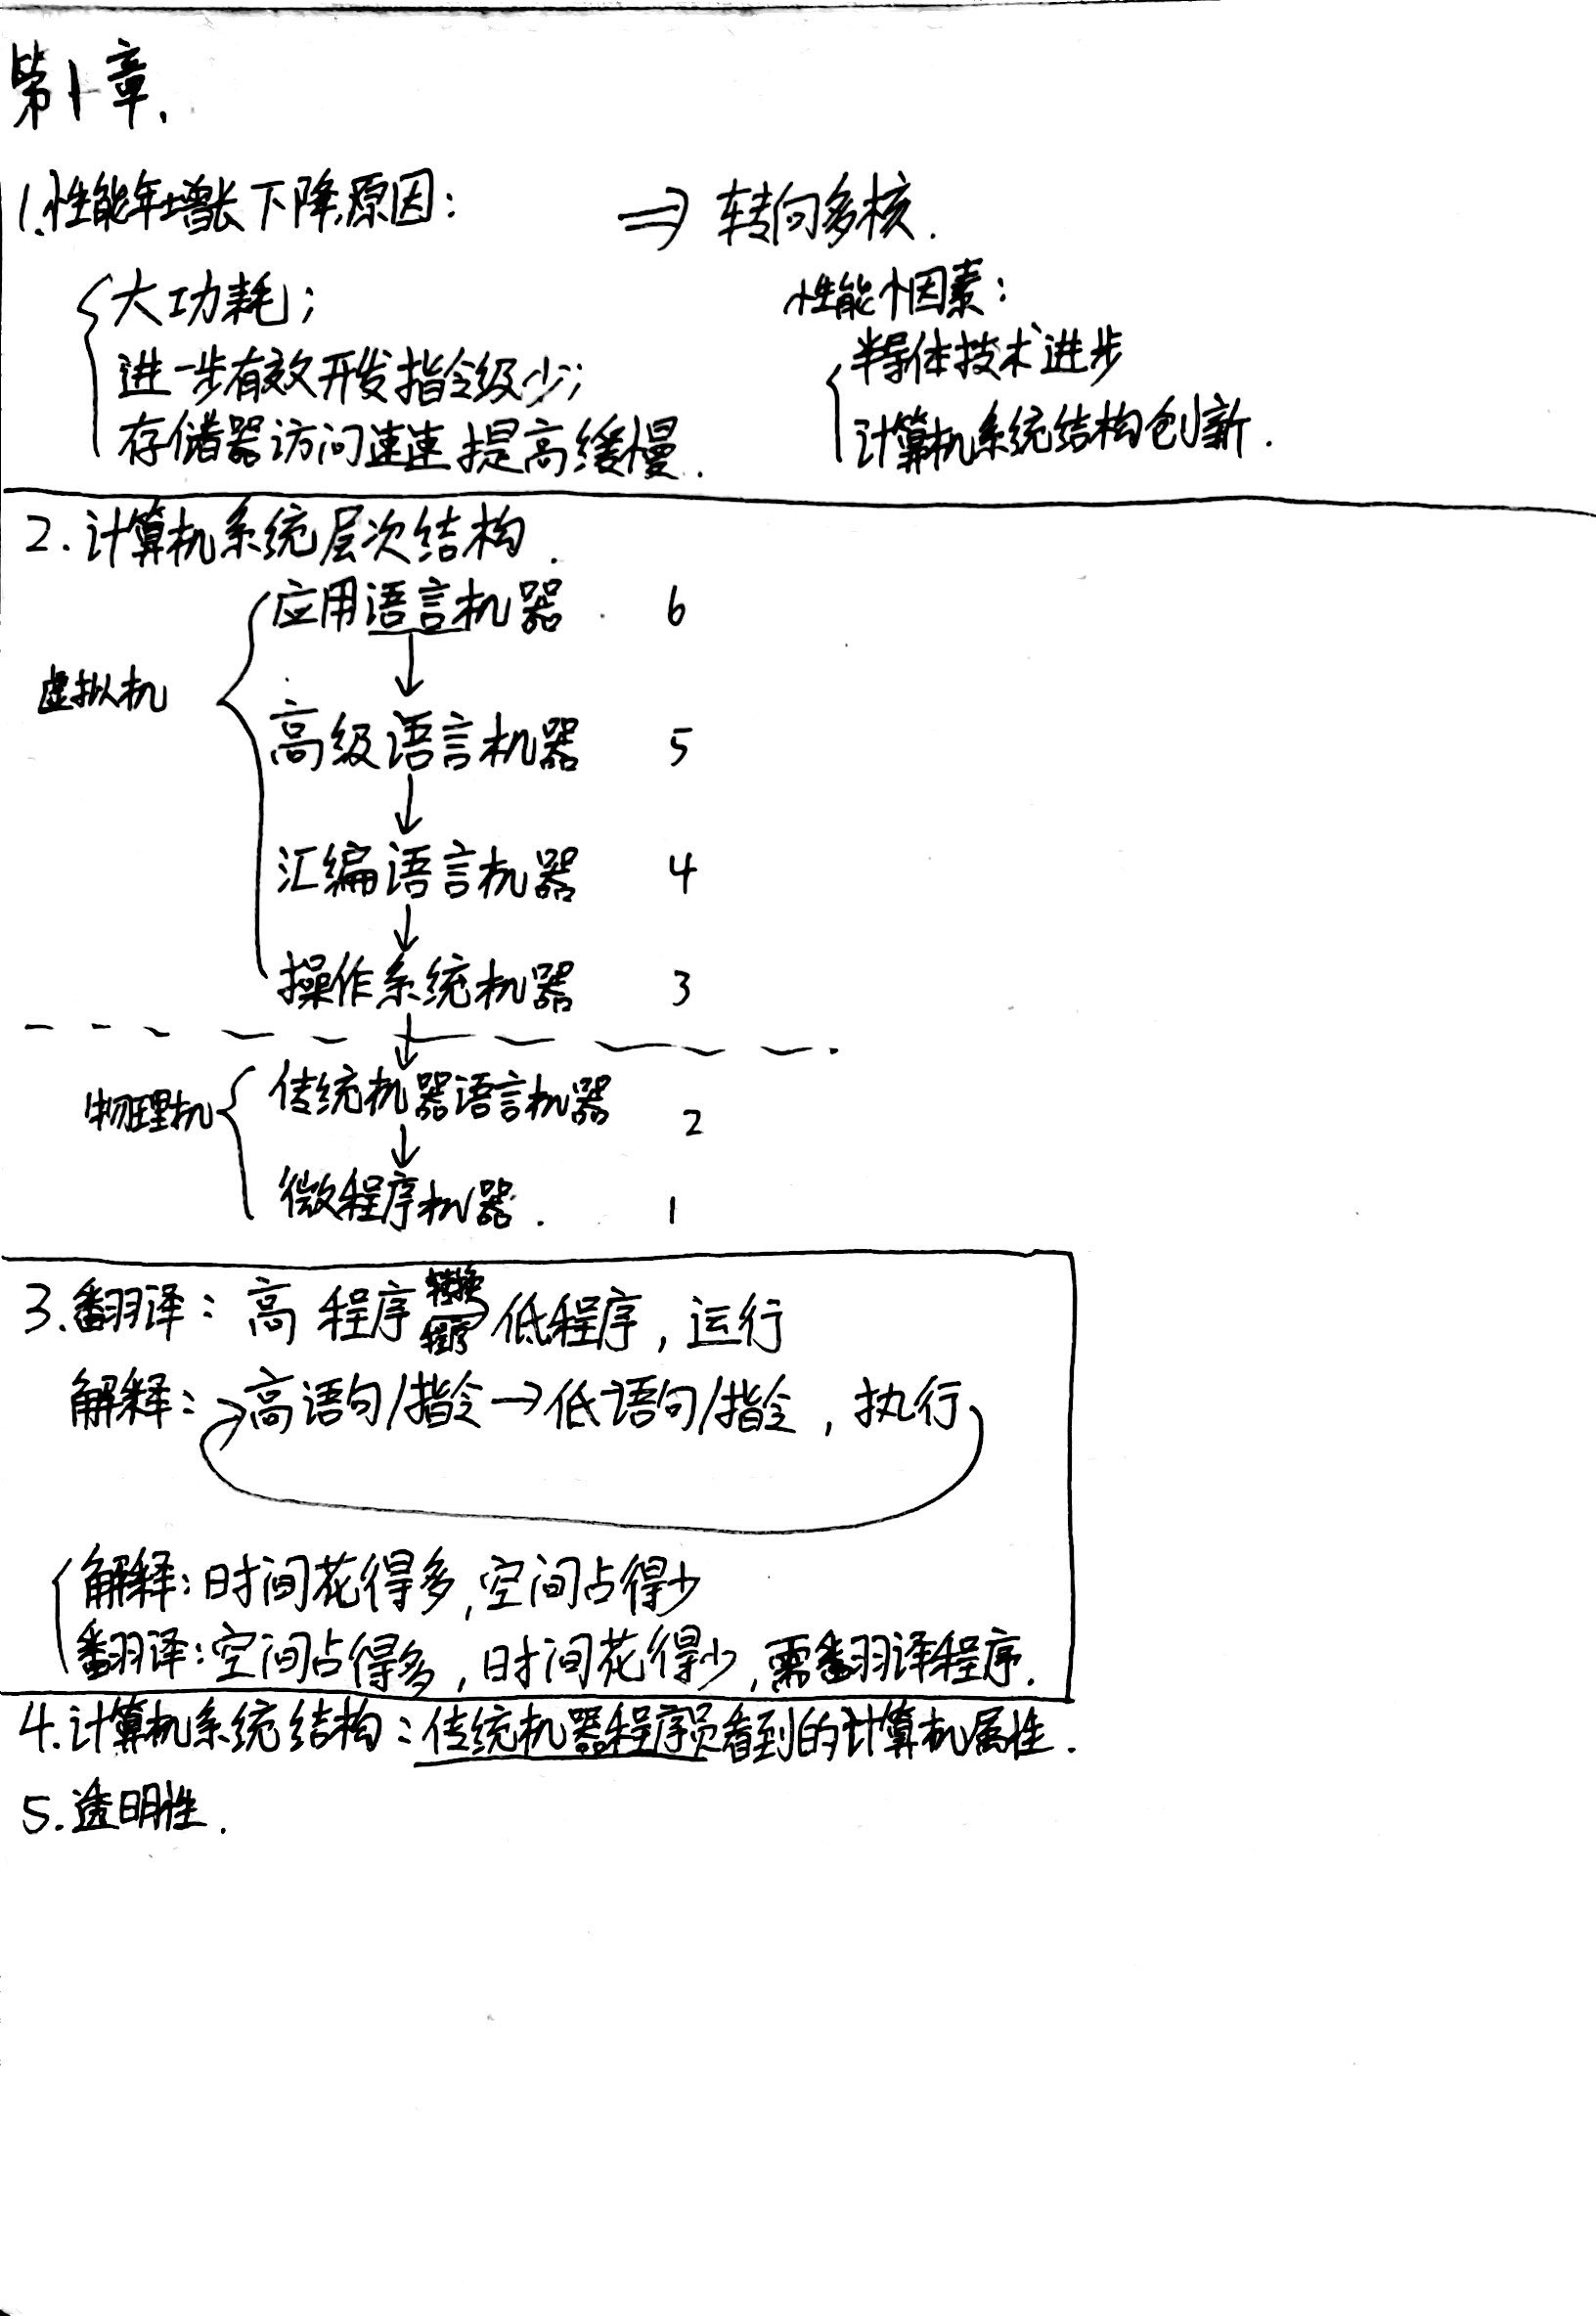 第1章.
1.性能年增长下降原因: ⇒ 转向多核.
大功耗;
进一步有效开发指令级少;
存储器访问速速提高缓慢.
性能个因素:
半导体技术进步
计算机系统结构创新.
2.计算机系统层次结构.
虚拟机
应用语言机器 6
↓
高级语言机器 5
↓
汇编语言机器 4
↓
操作系统机器 3
↓
物理机
传统机器语言机器 2
↓
微程序机器. 1
3.翻译: 高 程序 转换 程序 → 低程序, 运行
解释: 高语句/指令→低语句/指令, 执行
解释:时间花得多,空间占得少
翻译:空间占得多,时间花得少,需翻译程序.
4.计算机系统结构:传统机器程序员看到的计算机属性.
5.透明性.